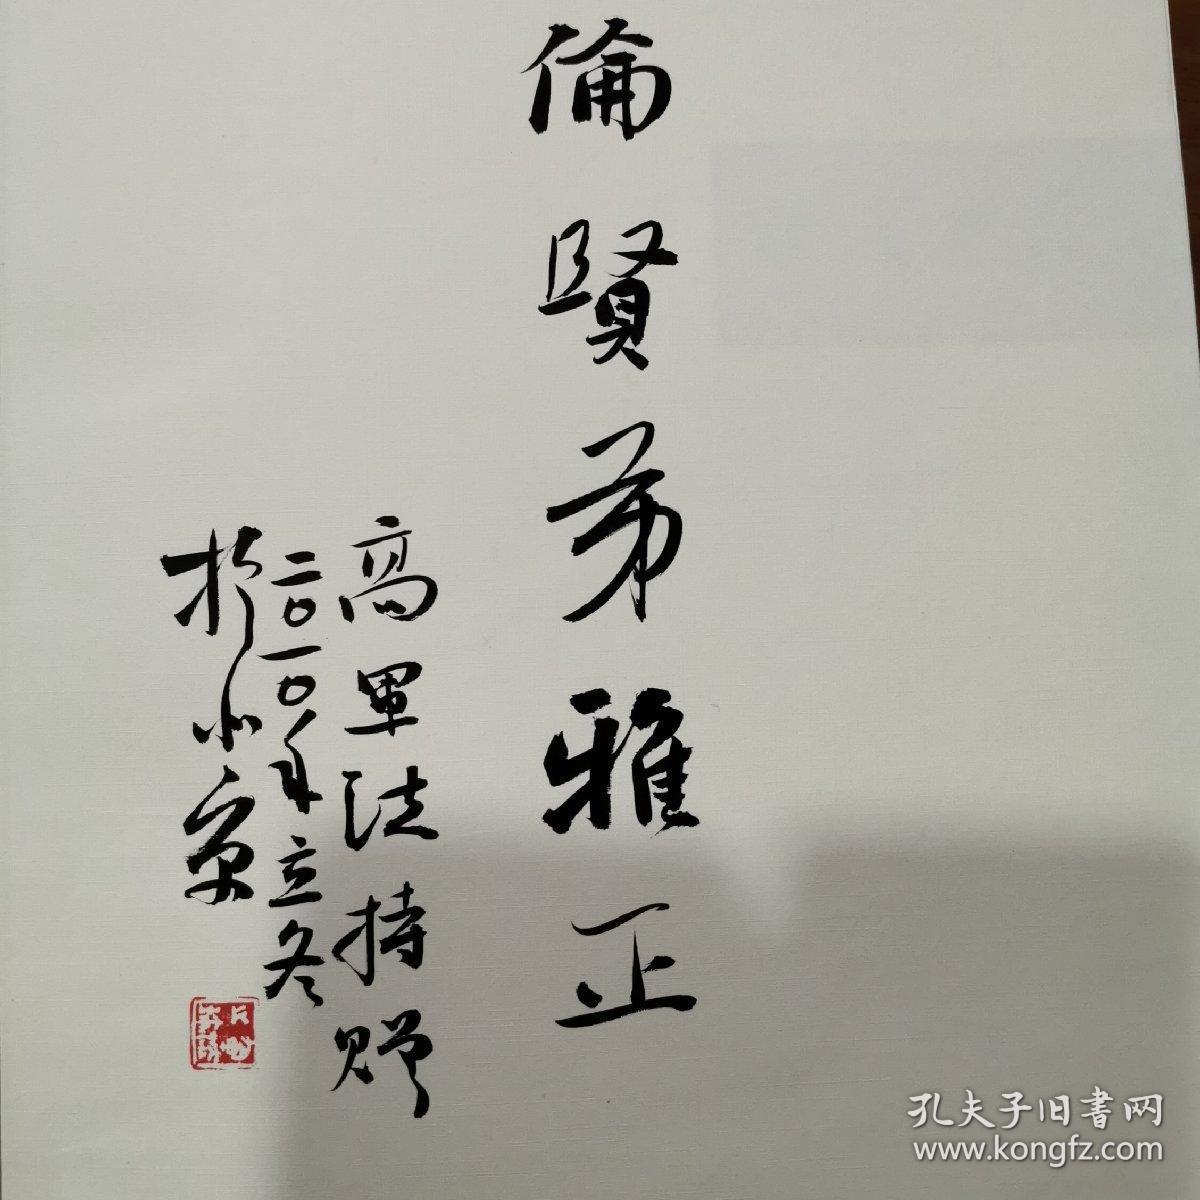 倫賢弟雅正
高軍法持贈
二〇一〇年立冬
於北京
孔夫子旧書网
www.kongfz.com